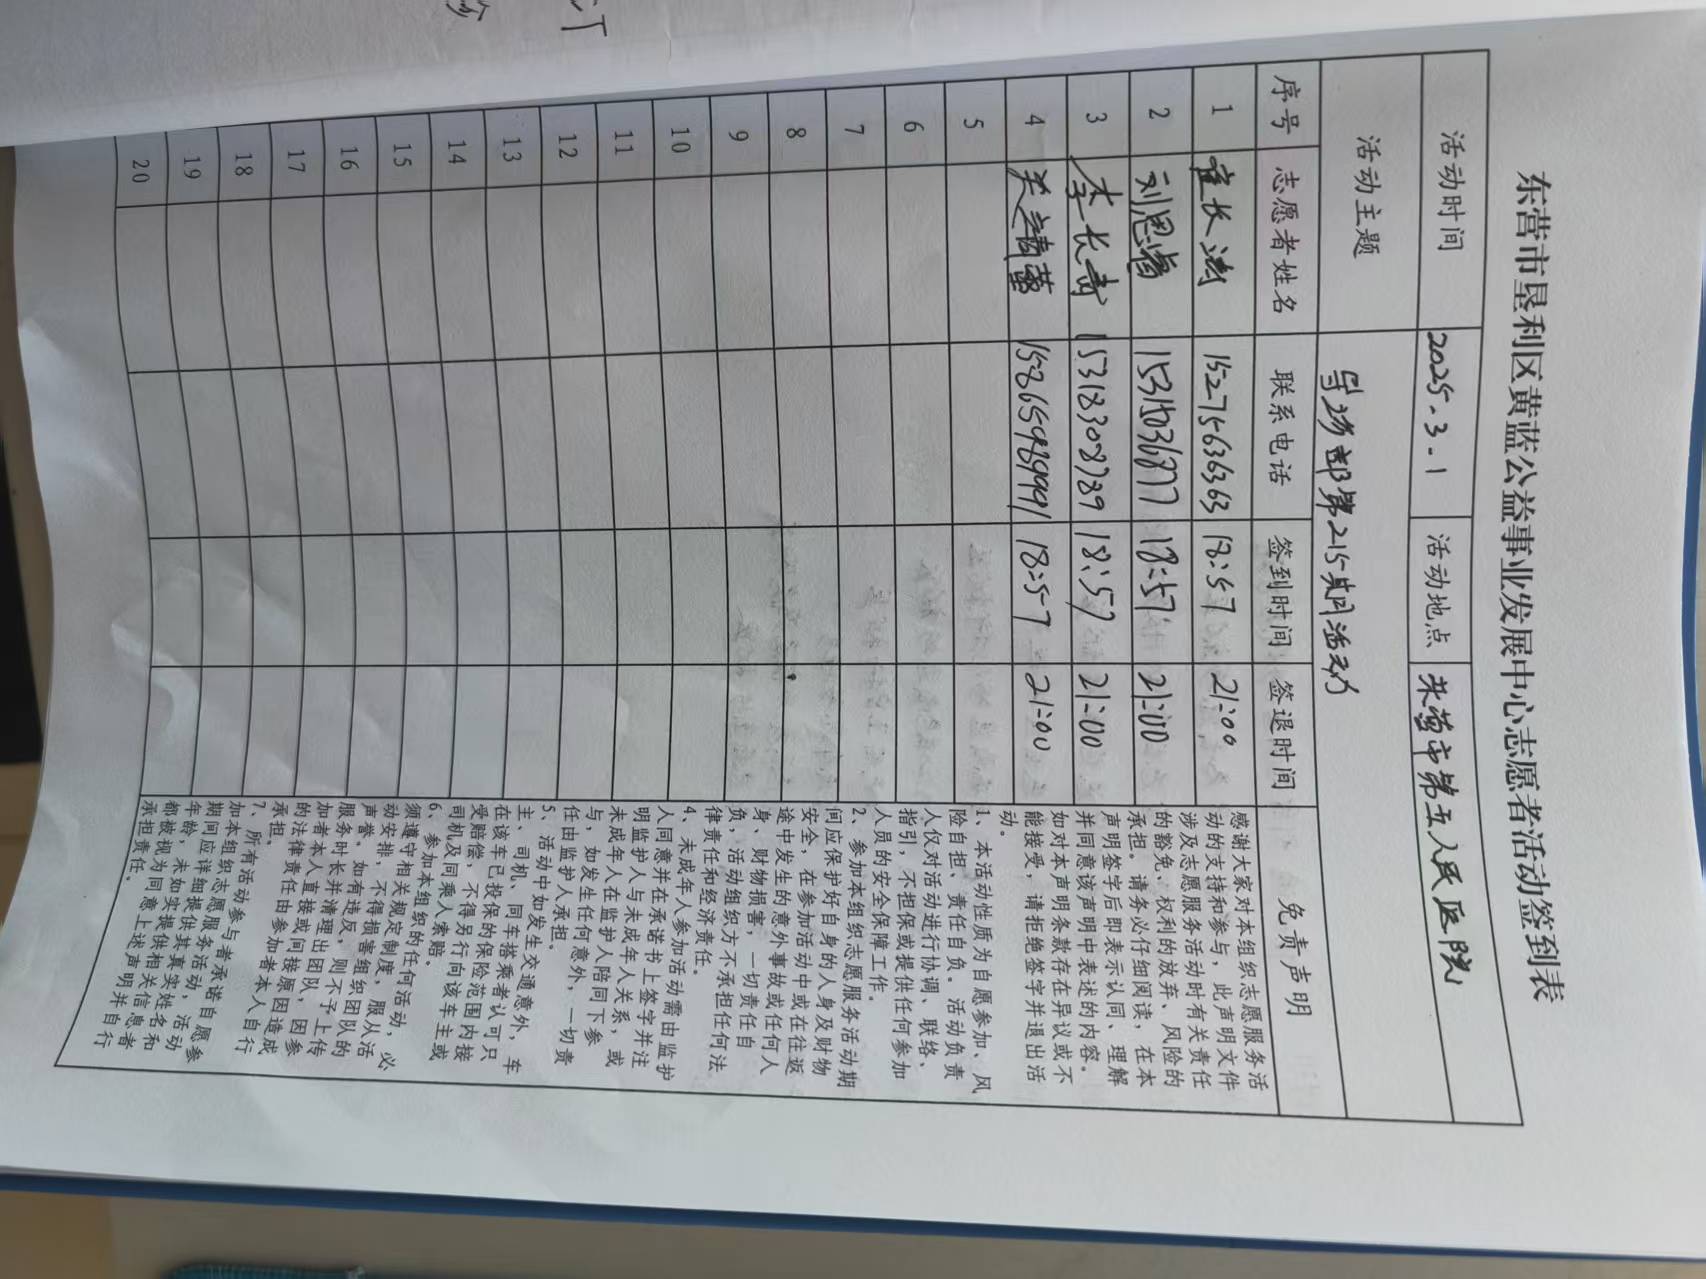 东营市垦利区黄蓝公益事业发展中心志愿者活动签到表
活动时间 2025.3.1 活动地点 东营市第五人民医院
活动主题 导诊部第215期活动
序号 志愿者姓名 联系电话 签到时间 签退时间 免责声明
1 崔长涛 15275636363 18:57 21:00
2 刘恩 18:57 21:00
3 李长青 15318308789 18:57 21:00
4 关清 18:57 21:00
5
6
7
8
9
10
11
12
13
14
15
16
17
18
19
20
感谢大家对本组织志愿服务活
动的支持和参与，此声明文件
涉及志愿服务活动时有关责任
的豁免、权利的放弃、风险的
承担。请务必仔细阅读，在本
声明签字后即表示认同、理解
并同意该声明中表述的内容。
如对本声明条款存在异议或不
能接受，请拒绝签字并退出活
动。
1、本活动性质为自愿参加、风
险自担、责任自负。活动负责
人仅对活动进行协调、联络、
指引，不担保或提供任何参加
人员的安全保障工作。
2、参加本组织志愿服务活动期
间应保护好自身的人身及财物
安全，在参加活动中或在往返
途中发生的意外事故或任何人
身、财物损害，一切责任自
负，活动组织方不承担任何法
律责任和经济责任。
4、未成年人参加活动需由监护
人同意并在承诺书上签字并注
明监护人与未成年人关系，或
未成年人在监护人陪同下参
与，如发生任何意外，一切责
任由监护人承担。
5、活动中如发生交通意外，车
主、司机、同车搭乘者认可只
在该车已投保的保险范围内接
受赔偿，不得另行向该车主或
司机及同乘人索赔。
6、参加本组织的任何活动，必
须遵守相关规定制度，服从活
动安排，不得损害组织团队的
声誉。如有违反，则不予上传
服务时长并清理出团队，因参
加者本人直接或间接原因造成
的法律责任由参加者本人自行
承担。
7、所有活动参与者承诺自愿参
加本组织志愿服务活动，活动
期间应详细提供其真实姓名和
年龄，未如实提供相关信息者
都被视为同意上述声明并自行
承担责任。